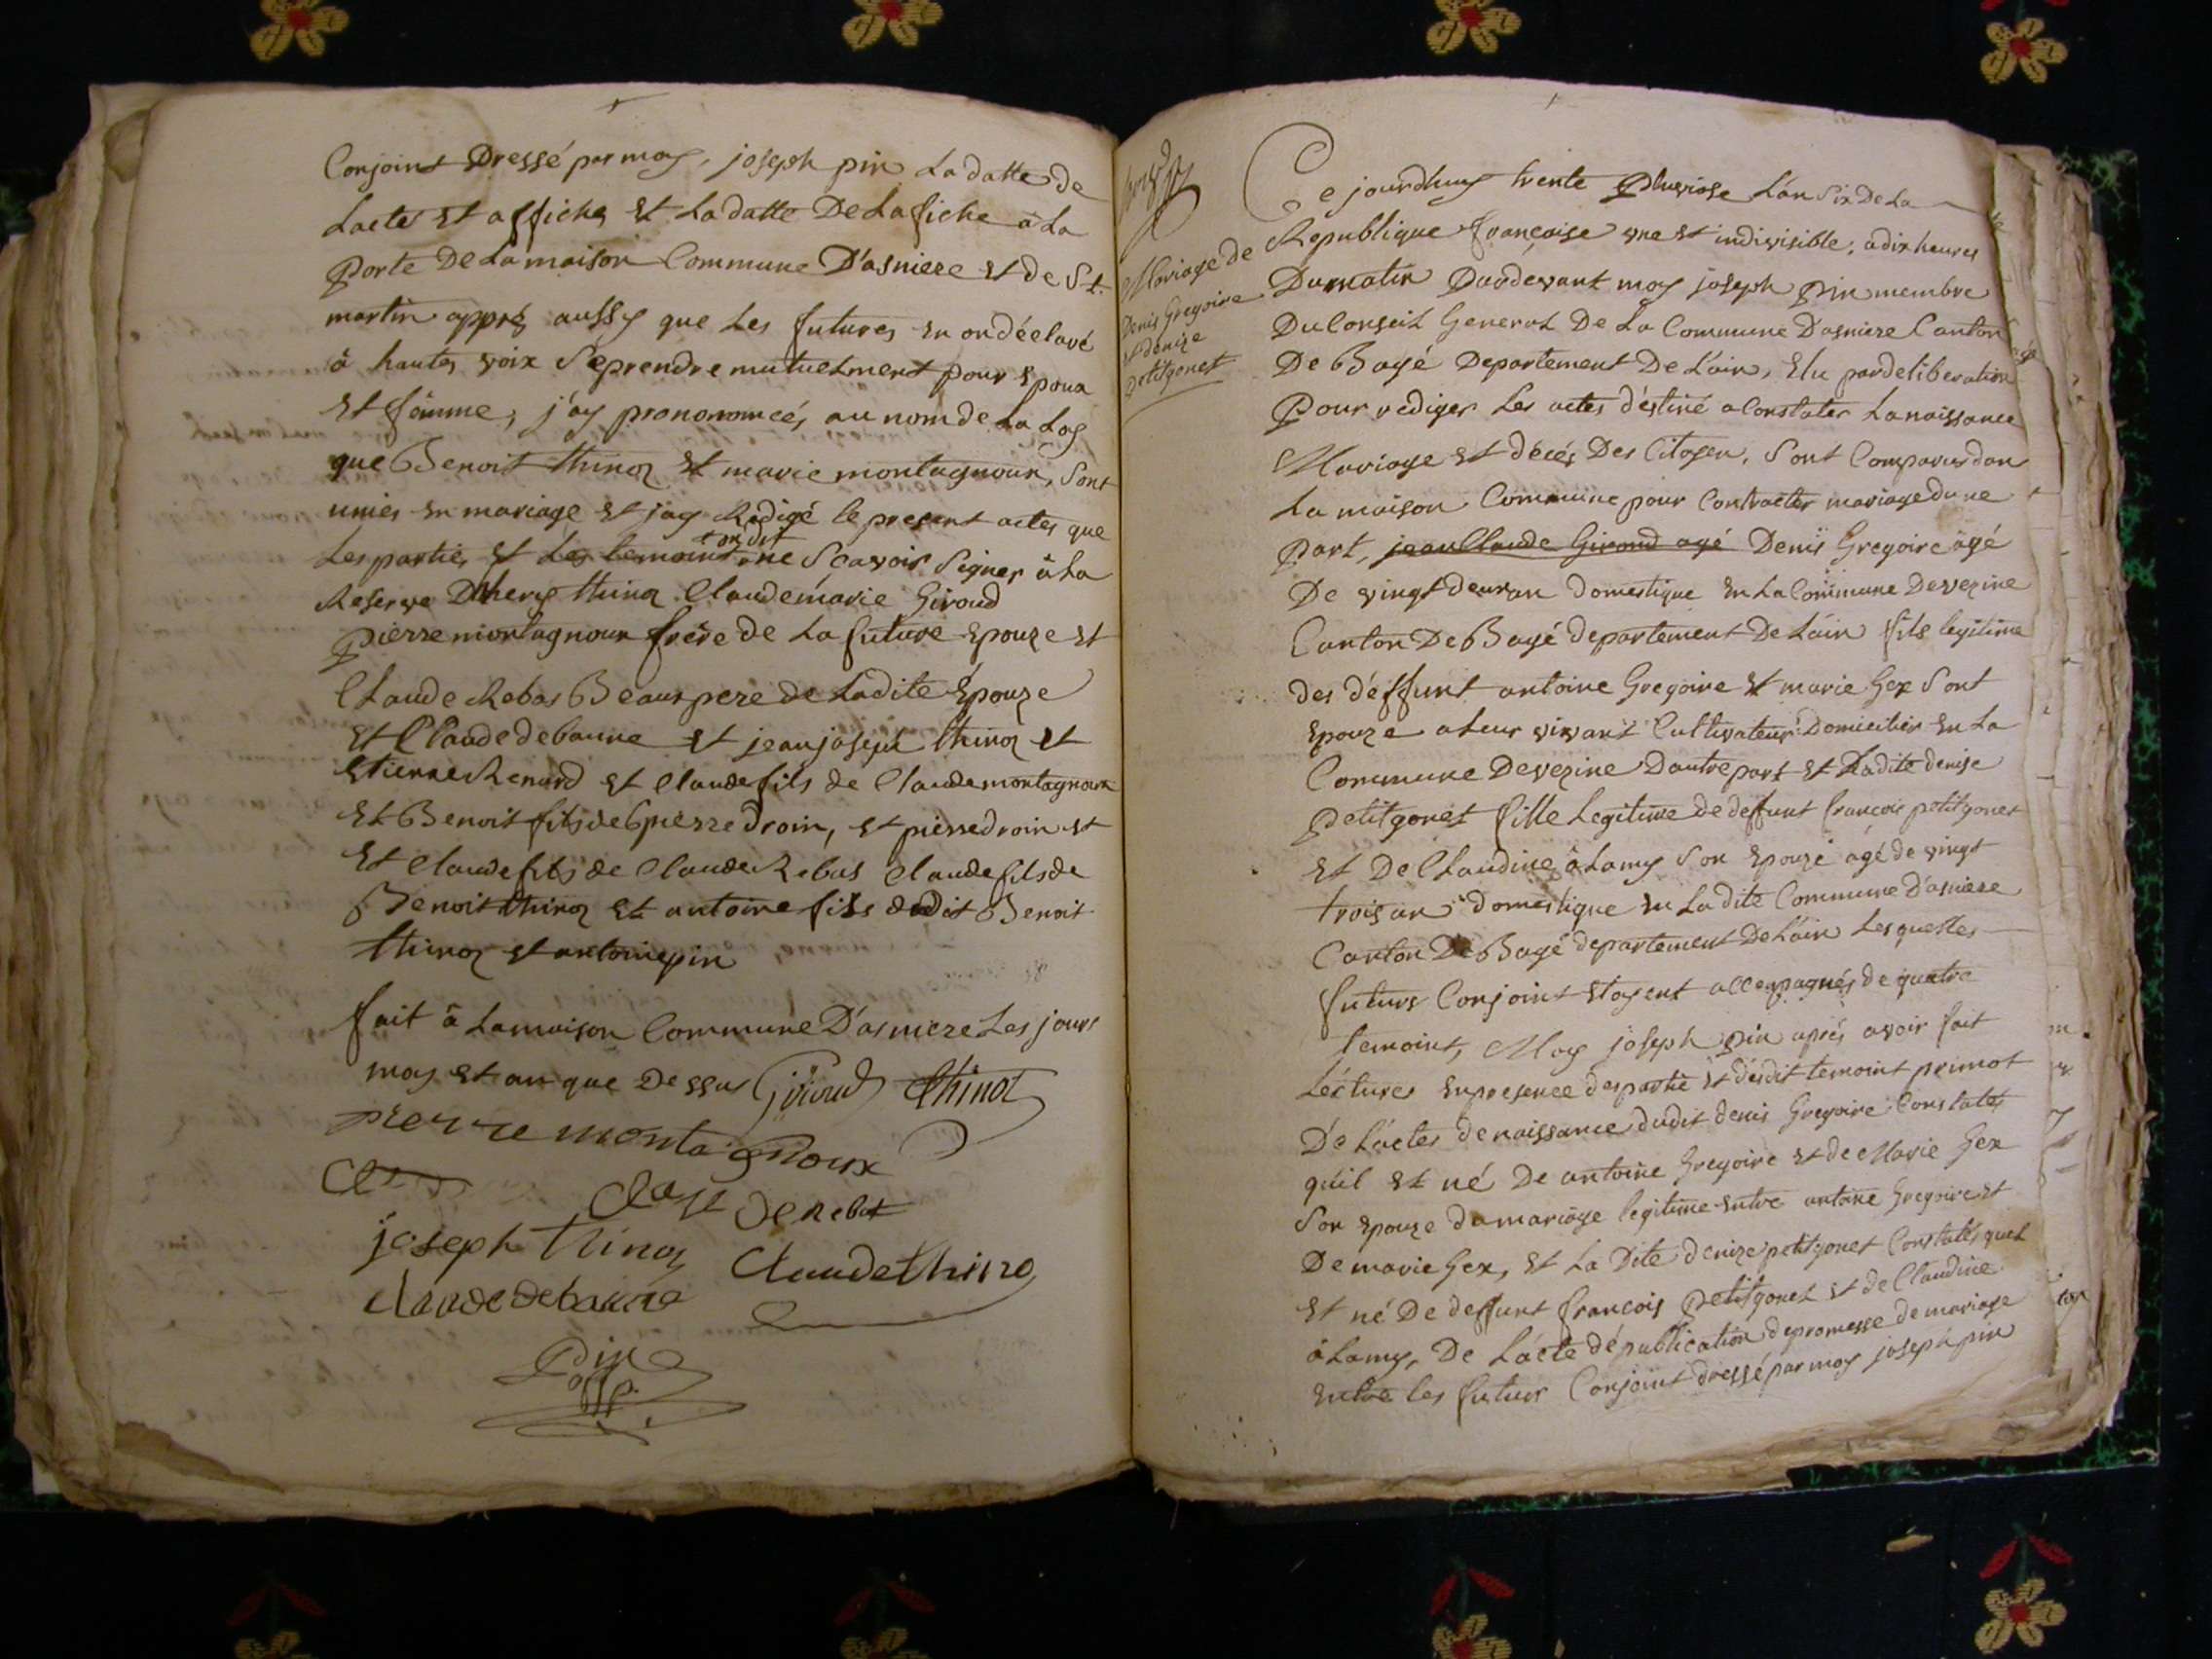 Conjoint Dressé par moy, joseph pin La datte de
Lactes Et affiches Et La datte De Lafiche a La
Porte De La maison Commune D'asniere Et de St.
martin apprés aussy que Les futures En on déclaré
à hautes voix Se prendre mutuelment pour Epoux
Et fâmme, j'ay pronononcés, au nom de La Loy
que Benoit thinoz Et marie montagnoux, Sont
unies En mariage Et j'ay Rédigé le present actes que
Les partie, Et Les temoint ont dit ne Scavoir Signer à La
Reserve thinoz Claude marie Giroud
pierre montagnoux frère de La future Epouze Et
Claude Rebas Beaux pere de Ladite Epouze
Et Claude debanne Et jean joseph thinoz Et
Etienne Renard Et Claude fils de Claude montagnoux
Et Benoit fils de pierre droin, Et pierre droin Et
Et Claude fils de Claude Rebas Claude fils de
Benoit thinoz Et antoine fils dudit Benoit
thinoz Et antoine pin
fait à La maison Commune D'asniere Les jours
moy Et an que Dessus Giroud thinoz
pierre montagnoux
joseph thinoz
Claude thino
claude debanne
Pin
Mariage de
Denis Gregoire
et denize
petitgonet
Ce jourdhuy trente Pluviose L'an Six De La
Republique françoise une Et indivisible, a dix heures
Du matin Pardevant moy joseph Pin membre
Du Conseil General De La Commune D'asniere Canton
De Bagé Departement De L'ain, Elu par deliberation
Pour rediger Les actes déstiné a Constater La naissance
Mariage Et décés Des Citoyen, Sont Comparus dan
La maison Commune pour Contracter mariage dune
Part, jean Claude Giroud agé Denis Gregoire âgé
De vingt deux an domestique En La Commune De vezine
Canton De Bagé departement De L'ain fils legitime
des déffunt antoine Gregoire Et marie Gex Sont
Epouze a Leur vivant Cultivateur Domicilier En La
Commune De vezine D autre part Et Ladite denise
petitgonet fille Legitime de deffunt francois petitgonet
Et De Claudine à Lamy Son Epouze agé de vingt
trois an domestique En La dite Commune D'asniere
Canton De Bagé departement De L'ain Lesquelles
futurs Conjoint Etoyent accompagnés de quatre
temoint, Moy joseph pin aprés avoir fait
Lécture En presence des partie Et désdit temoint primot
De Láctes de naissance dudit denis Gregoire Constates
qu'il Et né De antoine Gregoire Et de Marie Gex
Son Epouze du mariâge legitime Entre antoine Gregoire Et
De marie Gex, Et La Dite denize petitgonet Constatés quel
Et né De deffunt francois Petitgonet Et de Claudine
à Lamy, De Láctе dé publication de promesse de mariage
Entre les futurs Conjoint dressé par moy joseph pin